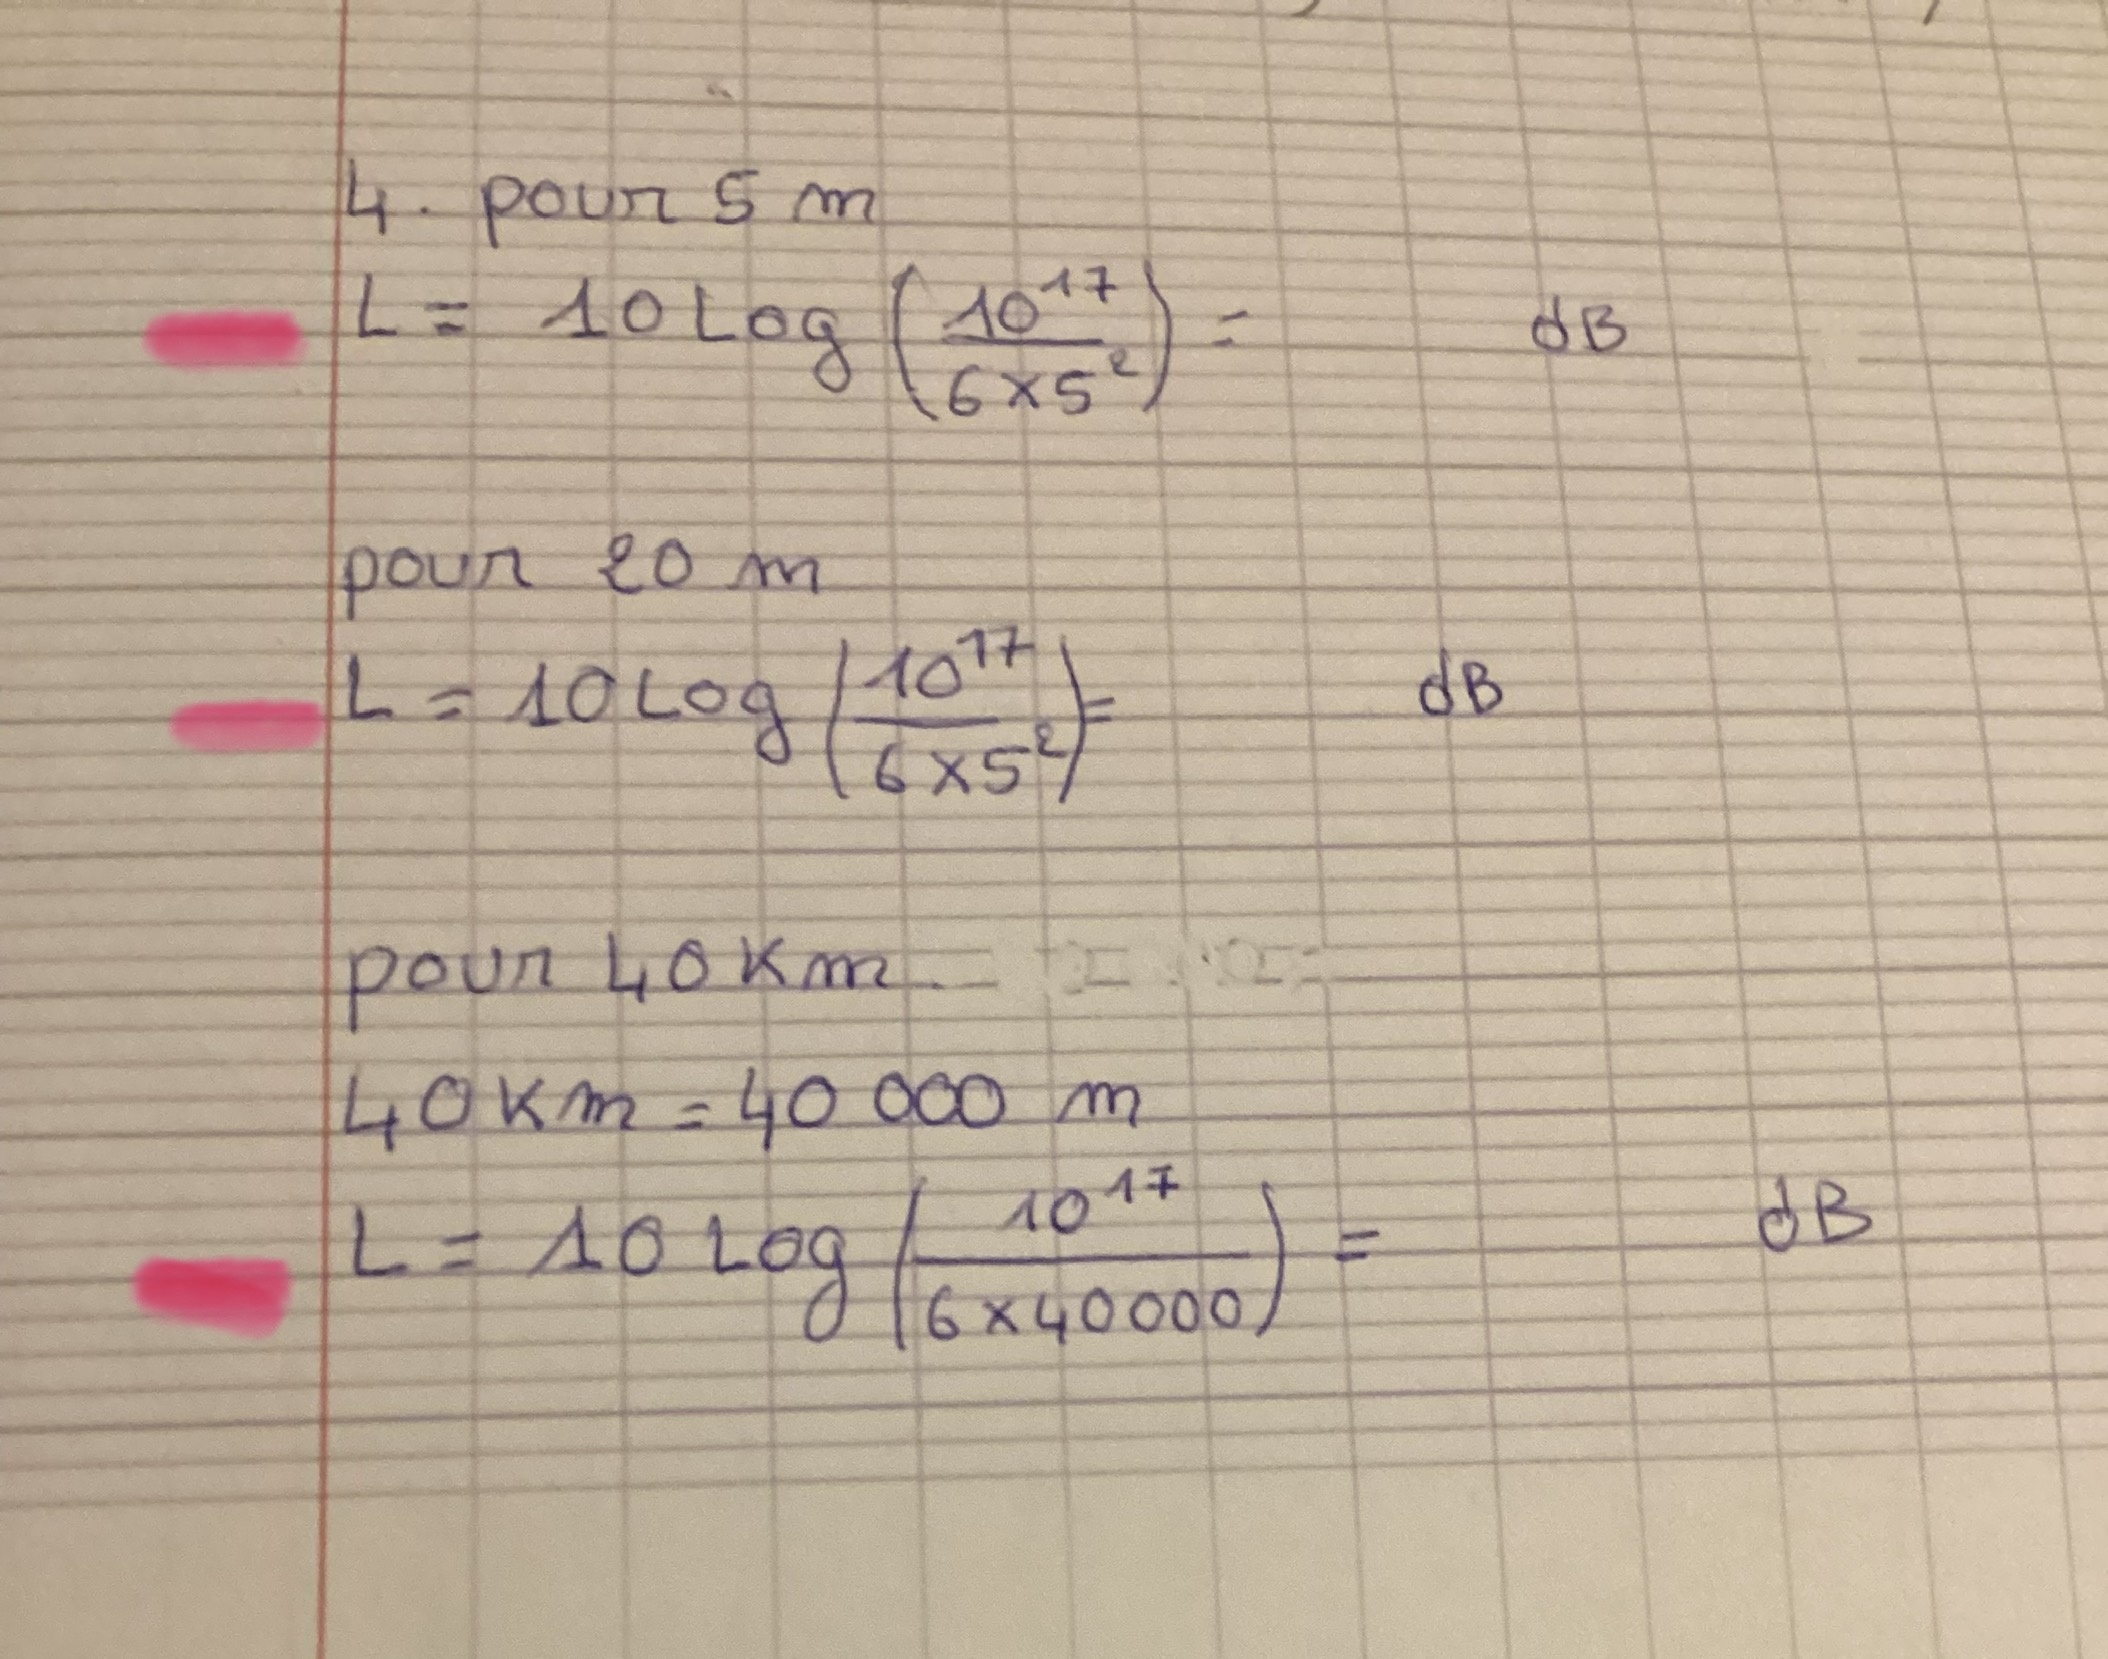 4. pour 5 m
L = 10 Log (10^17 / 6×5²) = dB
pour 20 m
L = 10 Log (10^17 / 6×5²) = dB
pour 40 Km
40 Km = 40 000 m
L = 10 Log (10^17 / 6×40000) = dB